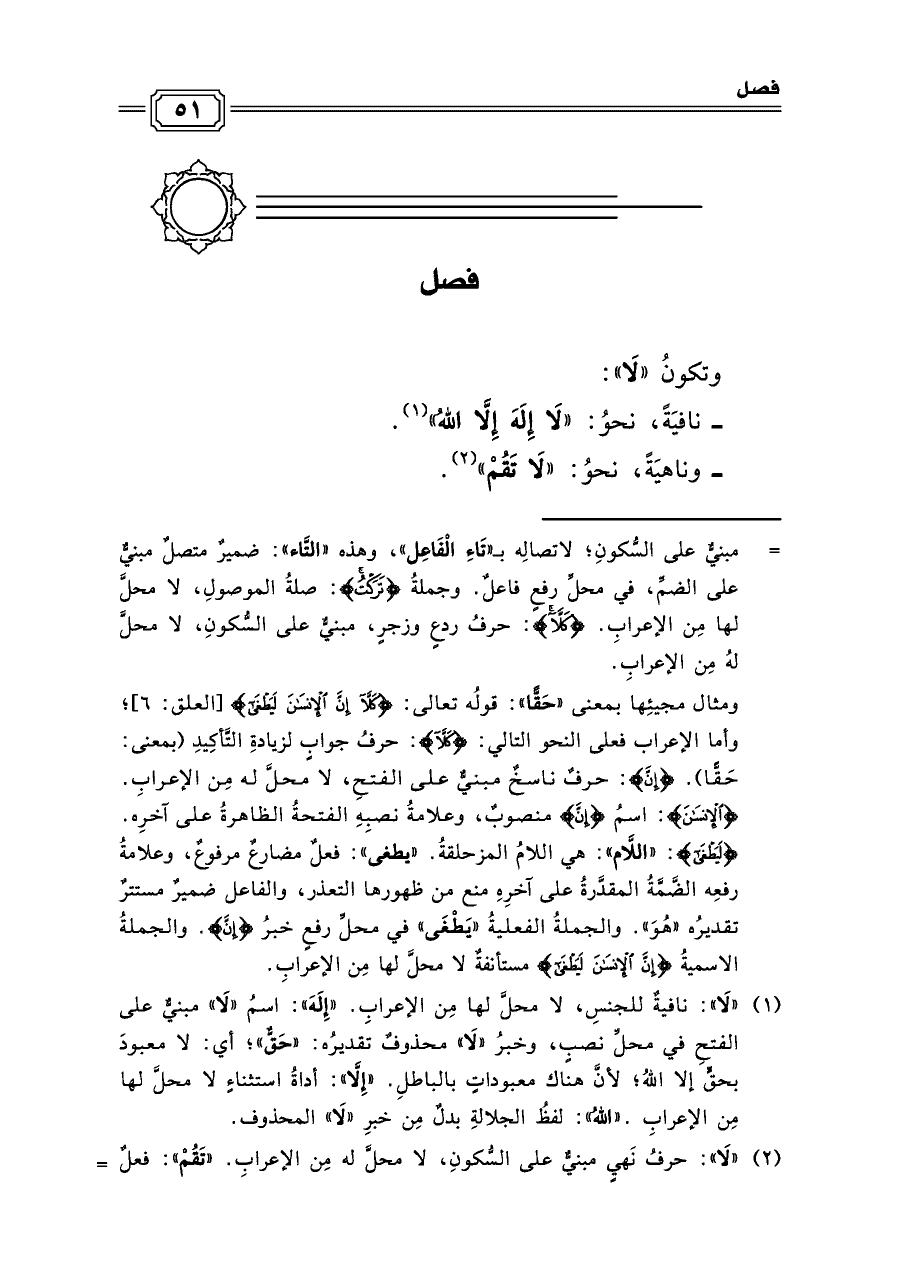 فصل
٥١
فصل
وتكونُ «لَا»:
ـ نافيَةً، نحوُ: «لَا إِلَهَ إِلَّا اللهُ»(١).
ـ وناهيَةً، نحوُ: «لَا تَقُمْ»(٢).
= مبنيٌّ على السُّكونِ؛ لاتصالِه بـ«تَاءِ الْفَاعِلِ»، وهذه «التَّاء»: ضميرٌ متصلٌ مبنيٌّ
على الضمِّ، في محلِّ رفعٍ فاعلٌ. وجملةُ ﴿تَرَكْتُ﴾: صلةُ الموصولِ، لا محلَّ
لها مِن الإعرابِ. ﴿كَلَّا﴾: حرفُ ردعٍ وزجرٍ، مبنيٌّ على السُّكونِ، لا محلَّ
لهُ مِن الإعرابِ.
ومثال مجيئِها بمعنى «حَقًّا»: قولُه تعالى: ﴿كَلَّآ إِنَّ ٱلْإِنسَـٰنَ لَيَطْغَىٰٓ﴾ [العلق: ٦]؛
وأما الإعراب فعلى النحو التالي: ﴿كَلَّآ﴾: حرفُ جوابٍ لزيادةِ التَّأكِيدِ (بمعنى:
حَقًّا). ﴿إِنَّ﴾: حرفٌ ناسخٌ مبنيٌّ على الفتحِ، لا محلَّ له مِن الإعرابِ.
﴿ٱلْإِنسَـٰنَ﴾: اسمُ ﴿إِنَّ﴾ منصوبٌ، وعلامةُ نصبِهِ الفتحةُ الظاهرةُ على آخرِه.
﴿لَيَطْغَىٰٓ﴾: «اللَّام»: هي اللامُ المزحلقةُ. «يطغى»: فعلٌ مضارعٌ مرفوعٌ، وعلامةُ
رفعِه الضَّمَّةُ المقدَّرةُ على آخرِهِ منع من ظهورها التعذر، والفاعل ضميرٌ مستترٌ
تقديرُه «هُوَ». والجملةُ الفعليةُ «يَطْغَى» في محلِّ رفعٍ خبرُ ﴿إِنَّ﴾. والجملةُ
الاسميةُ ﴿إِنَّ ٱلْإِنسَـٰنَ لَيَطْغَىٰٓ﴾ مستأنفةٌ لا محلَّ لها مِن الإعرابِ.
(١) «لَا»: نافيةٌ للجنسِ، لا محلَّ لها مِن الإعرابِ. «إِلَهَ»: اسمُ «لَا» مبنيٌّ على
الفتحِ في محلِّ نصبٍ، وخبرُ «لَا» محذوفٌ تقديرُه: «حَقٌّ»؛ أي: لا معبودَ
بحقٍّ إلا اللهُ؛ لأنَّ هناك معبوداتٍ بالباطلِ. «إِلَّا»: أداةُ استثناءٍ لا محلَّ لها
مِن الإعرابِ .«اللهُ»: لفظُ الجلالةِ بدلٌ مِن خبرِ «لَا» المحذوف.
(٢) «لَا»: حرفُ نَهيٍ مبنيٌّ على السُّكونِ، لا محلَّ له مِن الإعرابِ. «تَقُمْ»: فعلٌ =